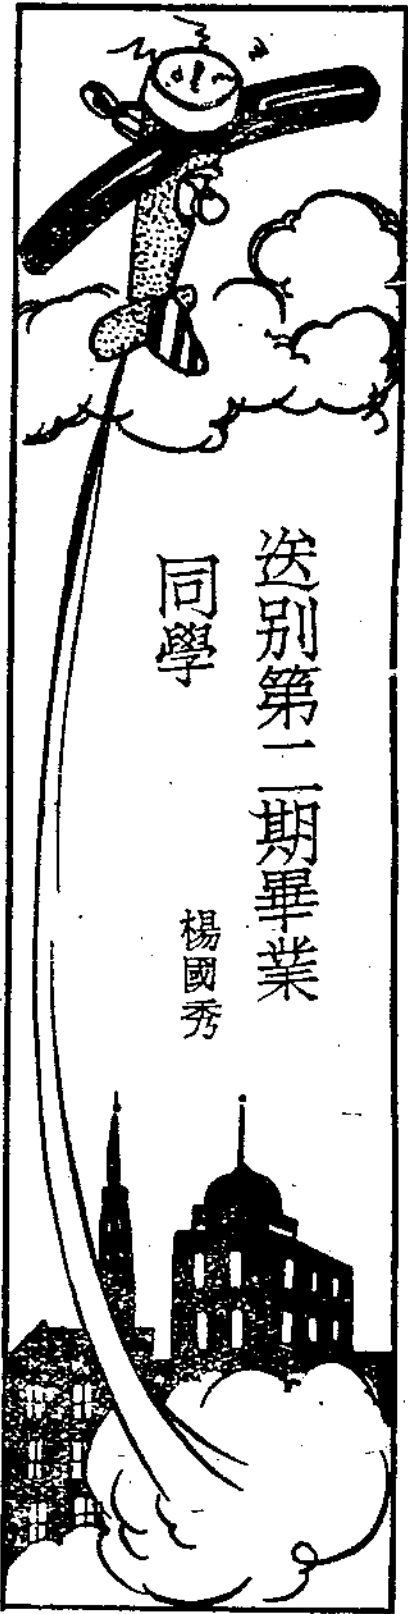 送别第二期畢業
同學
楊國秀